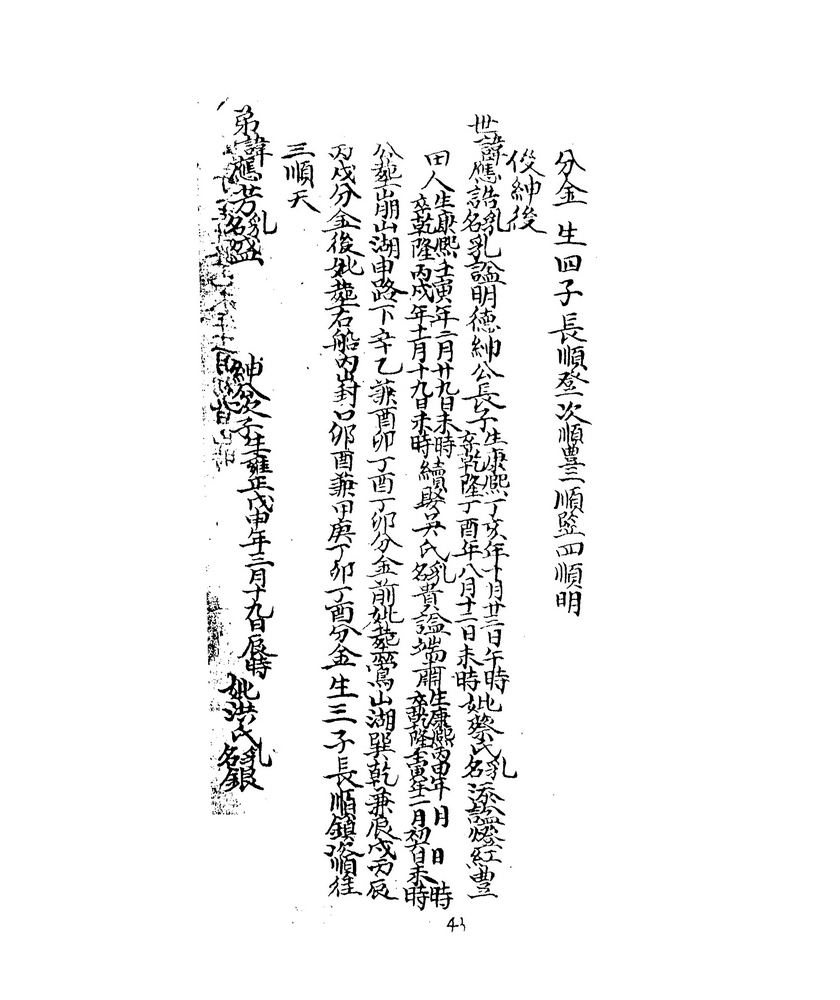 分金 生四子長順登次順豊三順鑒四順明
俊紳後
世諱應誥乳名乳諡明德紳公長子生康熙丁亥年十月廿三日午時卒乾隆丁酉年八月十二日未時妣蔡氏乳名添諡紅豊
田人生康熙壬寅年二月廿九日未時卒乾隆丙戌年十一月十九日未時續娶吳氏乳名貴諡端肅生康熙丙申年 月 日 時卒乾隆壬寅年二月初六日未時
公塟崩山湖申路下辛乙兼酉卯丁酉丁卯分金前妣塟鶯山湖巽乾兼辰戌丙辰
丙戌分金後妣塟右船內山封口卯酉兼甲庚丁卯丁酉分金生三子長順鎮次順往
三順天
弟諱應芳乳名盛 紳公次子生雍正戊申年三月十九日辰時 妣洪氏乳名銀
43